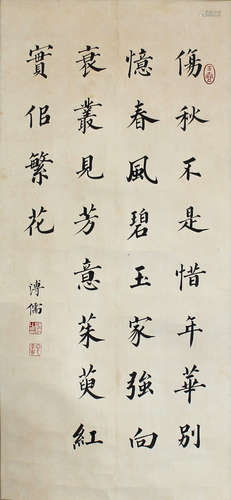 傷秋不是惜年華別
憶春風碧玉家強向
衰叢見芳意茱萸紅
實佀繁花
溥儒